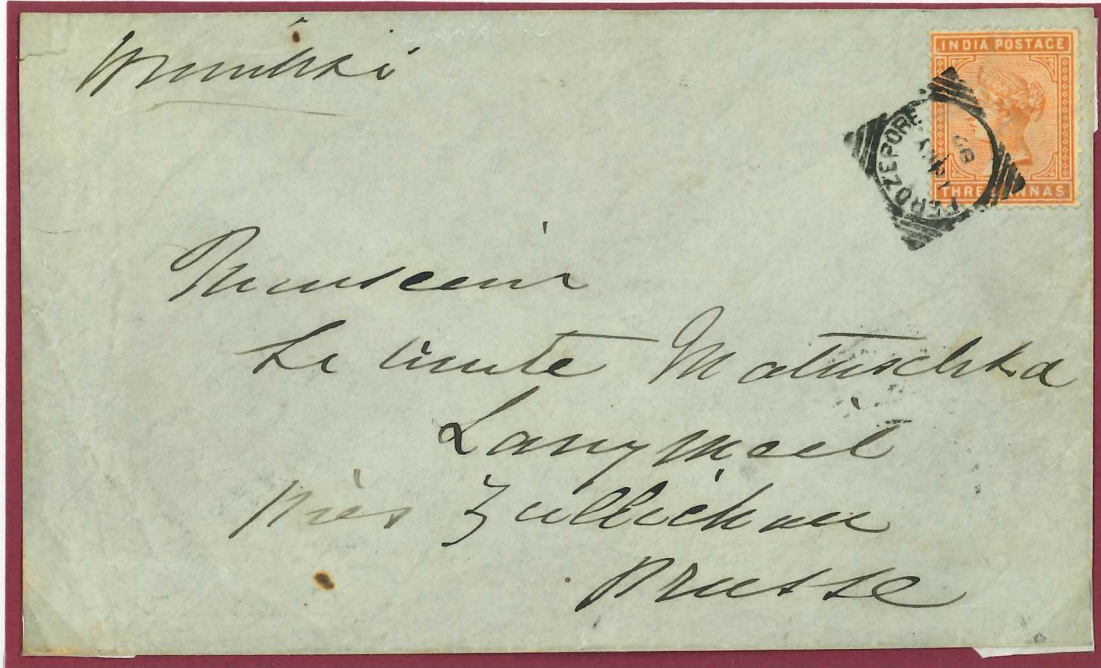 INDIA POSTAGE
THREE ANNAS
FEROZEPORE
Monsieur
Le Comte Matuschka
Langmeil
Près Züllichau
Prusse